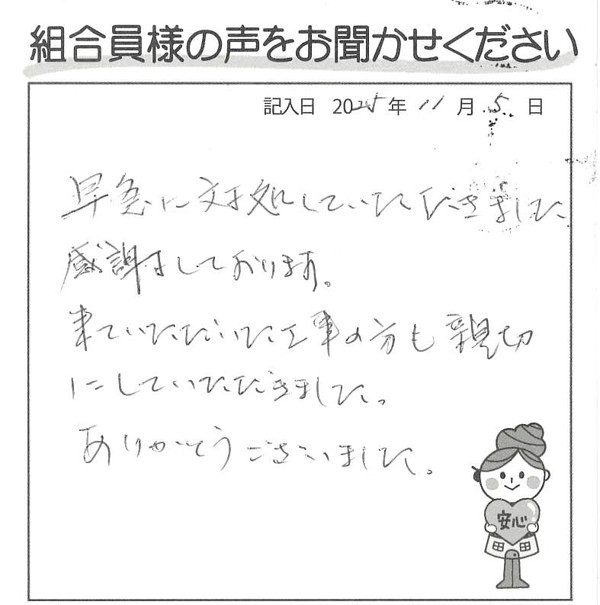 組合員様の声をお聞かせください
記入日 2025年 11月 5日
早急に対処していただきました
感謝をしております。
来ていただいた工事の方も親切
にしていただきました。
ありがとうございました。
安心